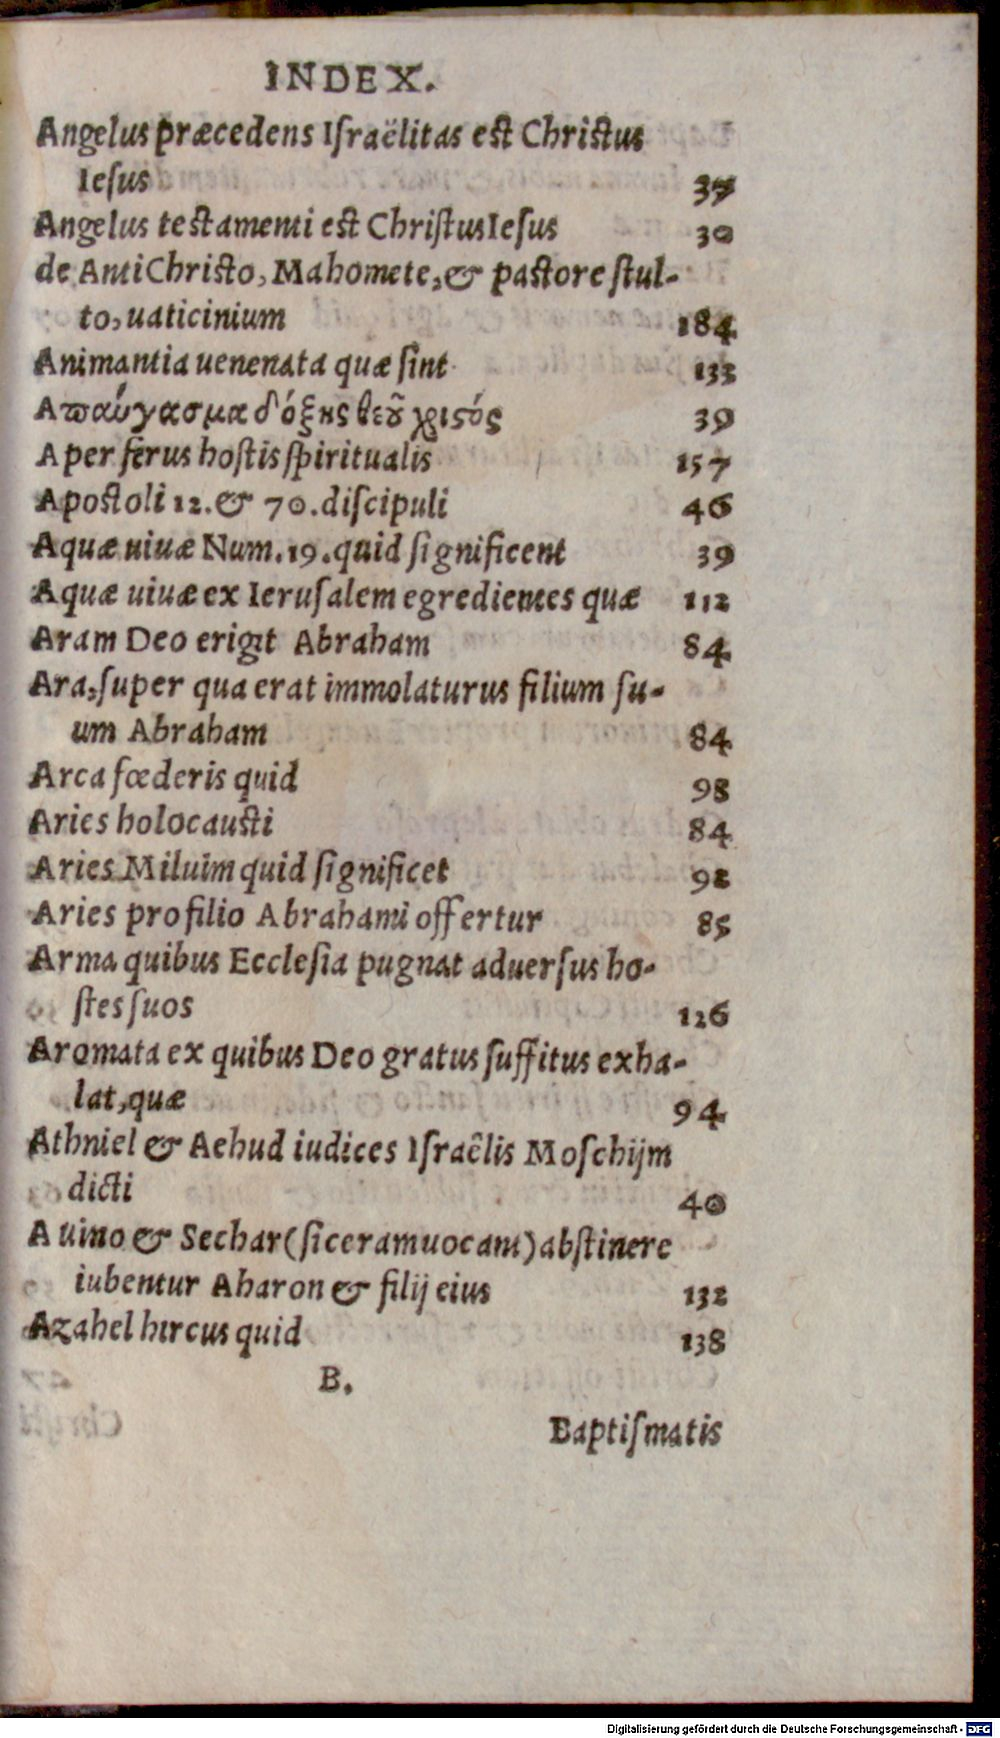 INDEX.
Angelus præcedens Iſraëlitas est Christus
Ieſus 37
Angelus testamenti est Chriſtus Ieſus 30
de AntiChristo, Mahomete, & pastore ſtul-
to, uaticinium 184
Animantia uenenata quæ ſint 133
Aπαύγασμα δόξης θεοῦ χριςός 39
Aper ferus hoſtis ſpiritualis 157
Apostoli 12. & 70. diſcipuli 46
Aquæ uiuæ Num. 19. quid ſignificent 39
Aquæ uiuæ ex Ieruſalem egredientes quæ 112
Aram Deo erigit Abraham 84
Ara, ſuper qua erat immolaturus filium ſu-
um Abraham 84
Arca fœderis quid 98
Aries holocausti 84
Aries Miluim quid ſignificet 98
Aries pro filio Abrahami offertur 85
Arma quibus Eccleſia pugnat aduerſus ho-
ſtes ſuos 126
Aromata ex quibus Deo gratus ſuffitus exha-
lat, quæ 94
Athniel & Aehud iudices Iſraêlis Moſchijm
dicti 40
A uino & Sechar (ſiceram uocant) abſtinere
iubentur Aharon & filij eius 132
Azahel hircus quid 138
B.
Baptiſmatis
Digitalisierung gefördert durch die Deutsche Forschungsgemeinschaft - DFG